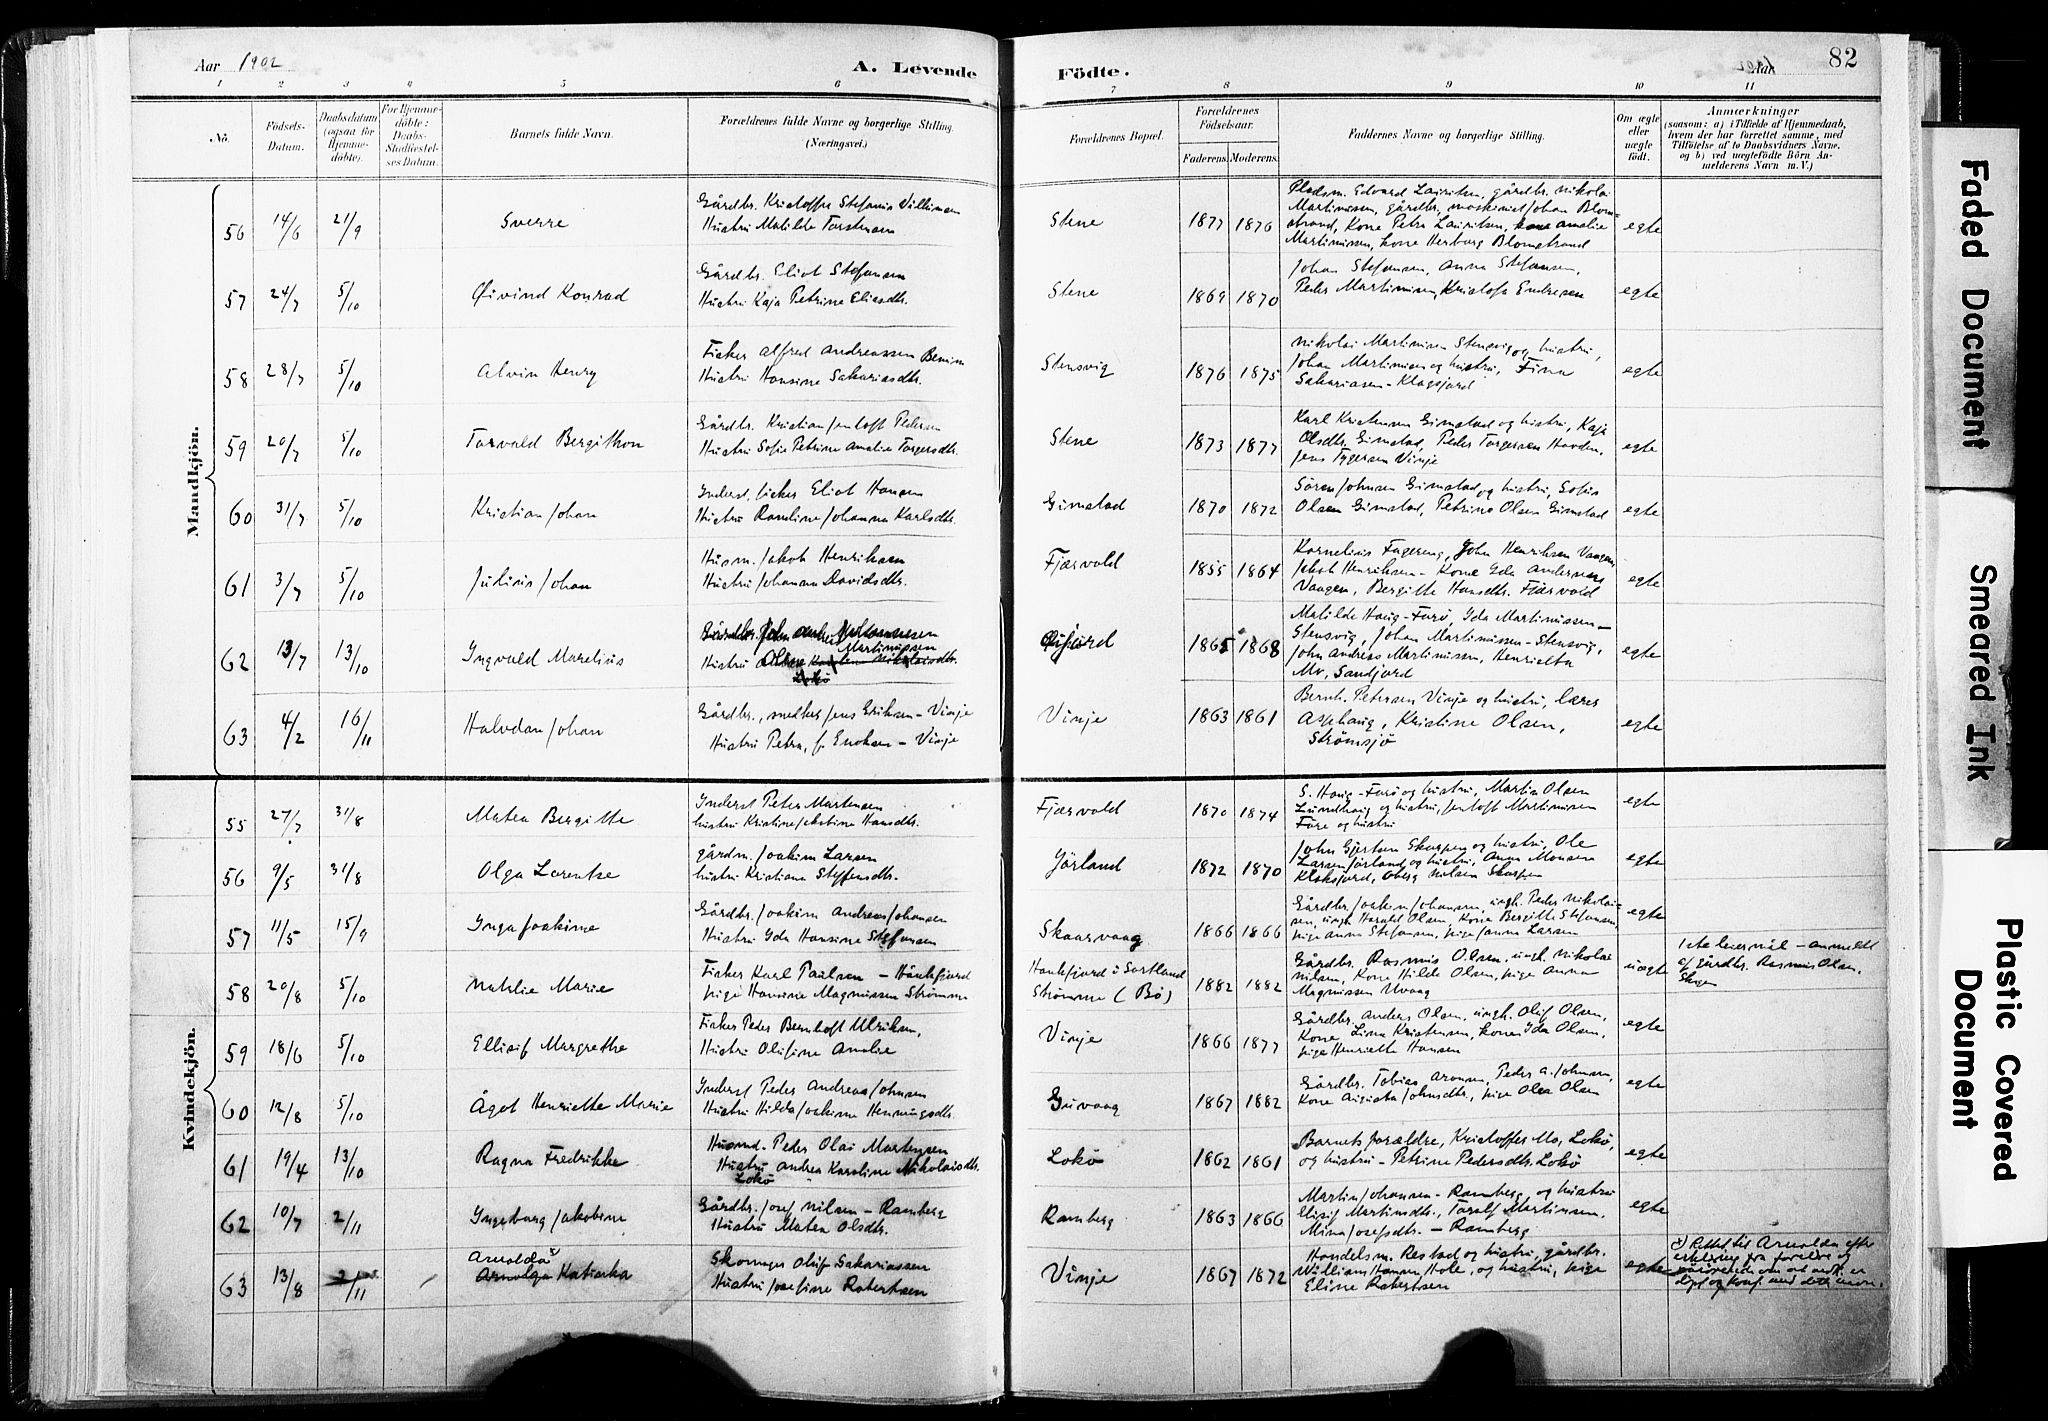 Aar 1902
A. Levende
Födte.
Aar 1902
82
1 2 3 4 5 6 7 8 9 10 11
No.
Födsels-
Datum.
Daabsdatum
(ogsaa for
Hjemme-
döbte).
For Hjemme-
döbte:
Daabs-
Stadfæstel-
ses Datum.
Barnets fulde Navn.
Forældrenes fulde Navne og borgerlige Stilling.
(Næringsvei.)
Forældrenes Bopæl.
Forældrenes
Födselsaar.
Faderens. Moderens.
Faddernes Navne og borgerlige Stilling.
Om ægte
eller
uægte
født.
Anmærkninger
(saasom: a) i Tilfælde af Hjemmedaab,
hvem der har forrettet samme, med
Tilföielse af to Daabsvidners Navne,
og b) ved uægtefödte Börn An-
melderens Navn m. V.)
Mandkjön.
56 14/6 21/9 Sverre
Gårdbr. Kristoffer Stefanus Villumsen
Hustru Matilde Torstensen
Stene 1877 1876
Pladsm. Edvard Lauritsen, gårdbr. Nikolai
Martinussen, gårdbr, maskinist Johan Blom-
strand, Kone Petra Lauritsen, kone Amalie
Martinussen, kone Herborg Blomstrand
egte
57 24/7 5/10 Øivind Konrad
Gårdbr. Eliot Stefansen
Hustru Kaja Petrine Eliasdtr.
Stene 1869 1870
Johan Stefansen, Anna Stefansen,
Peder Martinussen, Kristoffer Endresen
egte
58 28/7 5/10 Alvin Henry
Fisker Alfred Andreassen
Hustru Hansine Sakariasdtr.
Stensvig 1876 1875
Nikolai Martinusen Stensvig og hustru,
Johan Martinusen og hustru, Fina
Sakariasen - Klagsfjord
egte
59 20/7 5/10 Torvald Bergithon
Gårdbr. Kristian Jentoft Pedersen
Hustru Sofie Petrine Amalie Torgersdtr.
Stene 1873 1877
Karl Kristensen Gimstad og hustru, Kaja
Olsdtr. Gimstad, Peder Torgersen Hovden,
Jens Torgersen Vinje
egte
60 31/7 5/10 Kristian Johan
Inderst, fisker Eliot Hansen
Hustru Ramline Johanna Karlsdtr.
Gimstad 1870 1872
Sören Johnsen Gimstad og hustru, Sofus
Olsen Gimstad, Petrine Olsen Gimstad
egte
61 3/7 5/10 Julius Johan
Husm. Jakob Henriksen
Hustru Johanna Davidsdtr.
Fjærvold 1855 1864
Kornelius Fagereng, John Henriksen Vaagen,
Jakob Henriksen - Kone Ida Andersens
Vaagen, Bergitte Hansdtr. Fjærvold
egte
62 13/7 13/10 Ingvald Marelius
Gårdbr. John Andreas Martinussen
Hustru
Lokø
1865 1868
Matilde Haug - Furø, Ida Martinussen -
Stensvig, Johan Martinussen - Stensvig,
John Andreas Martinussen, Henrietta
Mo, Sandfjord
egte
63 4/2 16/11 Halvdan Johan
Gårdbr., snedker Jens Eriksen - Vinje
Hustru Petra, f. Enoksen - Vinje
Vinje 1863 1861
Bernh. Petersen Vinje og hustru, lærer
Asphaug, Kristine Olsen,
Strømsjö
egte
Kvindekjön.
55 27/7 31/8 Matea Bergitte
Inderst Peter Martensen
hustru Kristine Jakobine Hansdtr.
Fjærvold 1870 1874
S. Haug - Furø og hustru, Martin Olsen
Lundhaug og hustru, Jentoft Martinusen
Føre og hustru
egte
56 9/5 31/8 Olga Lorentse
gårdm. Joakim Larsen
hustru Kristiana Steffensdtr.
Jörland 1872 1870
John Gjertsen Skarpen og hustru, Ole
Larsen Jörland og hustru, Anna Monsen
Kloksfjord, Oberg Nilsen Skarpen
egte
57 11/5 15/9 Inga Joakime
Gårdbr. Joakim Andreas Johansen
Hustru Ida Hansine Stefansen
Skaarvaag 1866 1866
Gårdbr. Joakim Johansen, ungk. Peder Nikolai-
sen, ungk. Harald Olsen, Kone Bergitte Stefansen,
pige Anna Stefansen, pige Janna Larsen
egte
58 20/8 5/10 Nathlie Marie
Fisker Karl Paulsen - Haukfjord
pige Hansine Magnussen Strømme
Haukfjord i Sortland
Strømme (Bø) 1882 1882
Gårdbr. Rasmus Olsen, ungk. Nikolai
Nilsen, Kone Hilde Olsen, pige Anna
Magnussen Uvaag
uægte
1ste leiermål - anmeldt
af gårdbr. Rasmus Olsen,
59 18/6 5/10 Ellisif Margrethe
Fisker Peder Bernhoft Ulriksen,
Hustru Olufine Amalie
Vinje 1866 1877
Gårdbr. Anders Olsen, ungk. Oluf Olsen,
Kone Lina Kristensen, kone Ida Olsen,
pige Henriette Hansen
egte
60 12/8 5/10 Ågot Henriette Marie
Inderst Peder Andreas Johnsen
Hustru Hilda Joakime Henningsdtr.
Guvaag 1867 1882
Gårdbr. Tobias Aronsen, Peder A. Johnsen,
Kone Augusta Johnsdtr., pige Olea Olsen
egte
61 19/4 13/10 Ragna Fredrikke
Husmd. Peder Olai Martensen
Hustru Andrea Karoline Nikolaisdtr.
Lokø
Lokø 1862 1861
Barnets forældre, Kristoffer Mo, Lokø,
og hustru - Petrine Pedersdtr. Lokø
egte
62 10/7 2/11 Ingeborg Jakobine
Gårdbr. Josef Nilsen - Ramberg
Hustru Maten Olsdtr.
Ramberg 1863 1866
Martin Johansen - Ramberg og hustru
Elisif Martinsdtr., Toralf Martinsen,
Mina Josefsdtr. - Ramberg
egte
63 13/8 2/11 Arnolda x
Arnolga Katinka
Skomager Oluf Sakariassen
Hustru Josefine Robertsen
Vinje 1867 1872
Handelsm. Restad og hustru, gårdbr.
William Hansen Hole, og hustru, pige
Eline Robertsen
egte
x) Rettet til Arnolda efter
erklæring fra foreldre og
pårørende om at vedk. er
døpt og konf. med dette navn.
Faded Document
Smeared Ink
Plastic Covered
Document